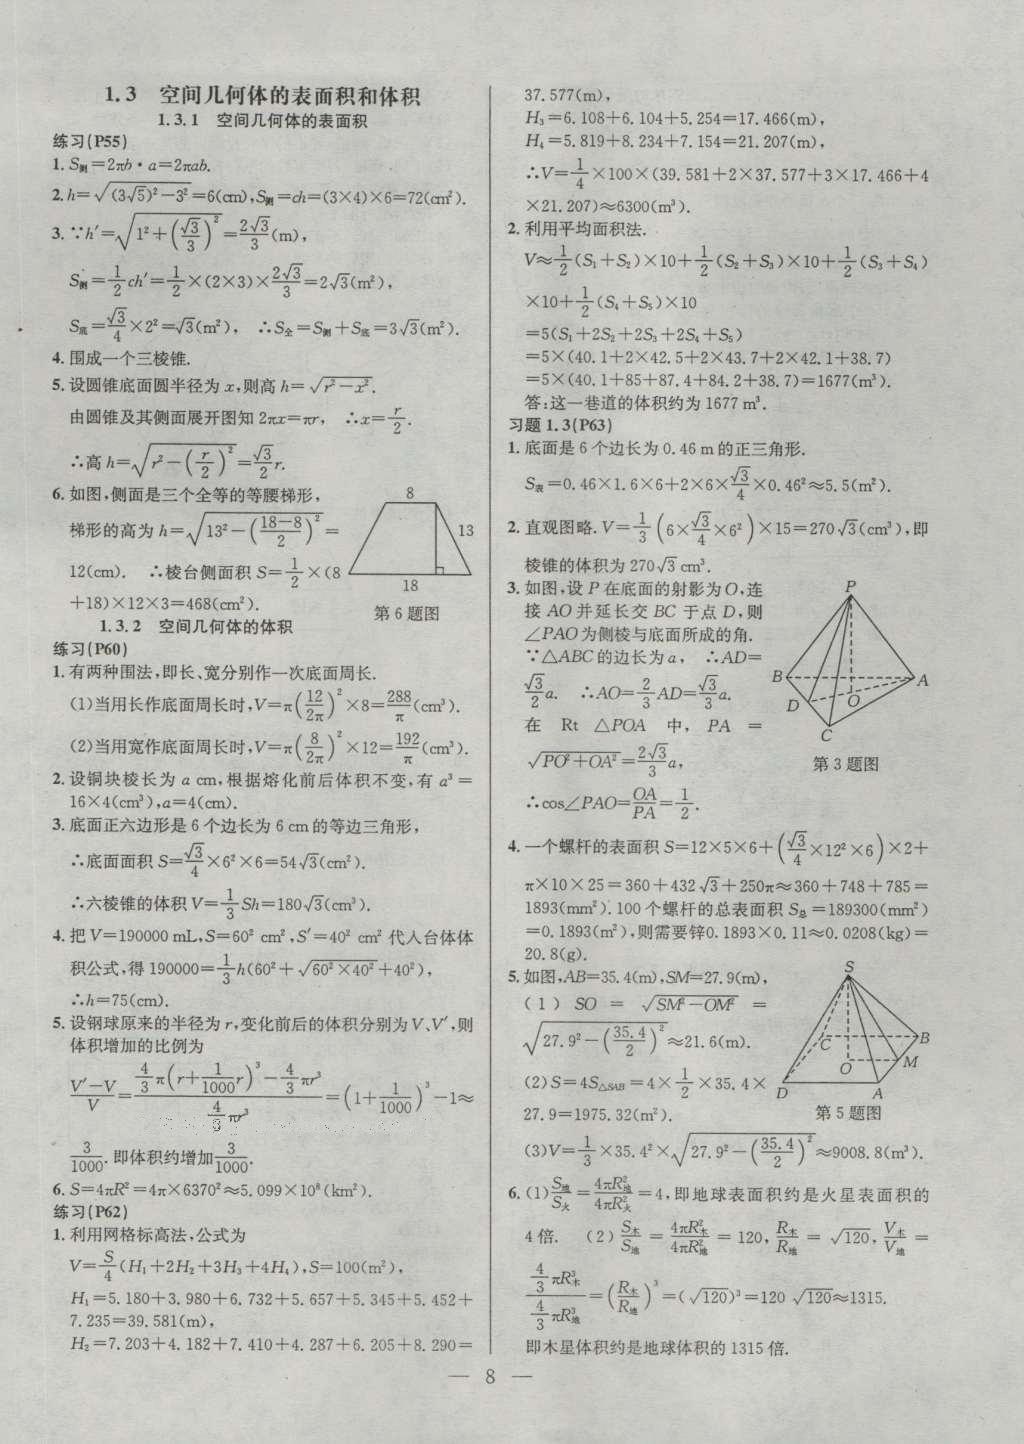 1.3 空间几何体的表面积和体积
1.3.1 空间几何体的表面积
练习(P55)
1. S侧=2πb·a=2πab.
2. h=√((3√5)²-3²)=6(cm),S侧=ch=(3×4)×6=72(cm²).
3. ∵h′=√(1²+(√3/3)²)=2√3/3(m),
S侧=1/2ch′=1/2×(2×3)×2√3/3=2√3(m²),
S底=√3/4×2²=√3(m²), ∴S全=S侧+S底=3√3(m²).
4. 围成一个三棱锥.
5. 设圆锥底面圆半径为x,则高h=√(r²-x²).
由圆锥及其侧面展开图知2πx=πr, ∴x=r/2.
∴高h=√(r²-(r/2)²)=√3/2r.
6. 如图,侧面是三个全等的等腰梯形,
梯形的高为h=√(13²-((18-8)/2)²)=
12(cm). ∴棱台侧面积S=1/2×(8
+18)×12×3=468(cm²).
8
13
18
第6题图
1.3.2 空间几何体的体积
练习(P60)
1. 有两种围法,即长、宽分别作一次底面周长.
(1)当用长作底面周长时,V=π(12/2π)²×8=288/π(cm³).
(2)当用宽作底面周长时,V=π(8/2π)²×12=192/π(cm³).
2. 设铜块棱长为a cm,根据熔化前后体积不变,有a³=
16×4(cm³),a=4(cm).
3. 底面正六边形是6个边长为6cm的等边三角形,
∴底面面积S=√3/4×6²×6=54√3(cm²).
∴六棱锥的体积V=1/3Sh=180√3(cm³).
4. 把V=190000 mL,S=60² cm²,S′=40² cm²代入台体体
积公式,得190000=1/3h(60²+√(60²×40²)+40²),
∴h=75(cm).
5. 设钢球原来的半径为r,变化前后的体积分别为V、V′,则
体积增加的比例为
(V′-V)/V=(4/3π(r+1/1000r)³-4/3πr³)/(4/3πr³)=(1+1/1000)³-1≈
3/1000.即体积约增加3/1000.
6. S=4πR²=4π×6370²≈5.099×10⁸(km²).
练习(P62)
1. 利用网格标高法,公式为
V=S/4(H₁+2H₂+3H₃+4H₄),S=100(m²),
H₁=5.180+3.980+6.732+5.657+5.345+5.452+
7.235=39.581(m),
H₂=7.203+4.182+7.410+4.287+6.205+8.290=
37.577(m),
H₃=6.108+6.104+5.254=17.466(m),
H₄=5.819+8.234+7.154=21.207(m),
∴V=1/4×100×(39.581+2×37.577+3×17.466+4
×21.207)≈6300(m³).
2. 利用平均面积法.
V≈1/2(S₁+S₂)×10+1/2(S₂+S₃)×10+1/2(S₃+S₄)
×10+1/2(S₄+S₅)×10
=5(S₁+2S₂+2S₃+2S₄+S₅)
=5×(40.1+2×42.5+2×43.7+2×42.1+38.7)
=5×(40.1+85+87.4+84.2+38.7)=1677(m³).
答:这一巷道的体积约为1677 m³.
习题1.3(P63)
1. 底面是6个边长为0.46 m的正三角形.
S表=0.46×1.6×6+2×6×√3/4×0.46²≈5.5(m²).
2. 直观图略.V=1/3(6×√3/4×6²)×15=270√3(cm³),即
棱锥的体积为270√3 cm³.
3. 如图,设P在底面的射影为O,连
接AO并延长交BC于点D,则
∠PAO为侧棱与底面所成的角.
∵△ABC的边长为a, ∴AD=
√3/2a. ∴AO=2/3AD=√3/3a.
在 Rt △POA 中, PA =
√(PO²+OA²)=2√3/3a,
∴cos∠PAO=OA/PA=1/2.
P
B
A
D
O
C
第3题图
4. 一个螺杆的表面积S=12×5×6+(√3/4×12²×6)×2+
π×10×25=360+432√3+250π≈360+748+785=
1893(mm²).100个螺杆的总表面积S总=189300(mm²)
=0.1893(m²),则需要锌0.1893×0.11≈0.0208(kg)=
20.8(g).
5. 如图,AB=35.4(m),SM=27.9(m),
(1) SO = √(SM²-OM²) =
√(27.9²-(35.4/2)²)≈21.6(m).
(2)S=4S△SAB=4×1/2×35.4×
27.9=1975.32(m²).
(3)V=1/3×35.4²×√(27.9²-(35.4/2)²)≈9008.8(m³).
S
C
B
O
M
D
A
第5题图
6. (1)S地/S火=4πR²地/4πR²火=4,即地球表面积约是火星表面积的
4倍. (2)S木/S地=4πR²木/4πR²地=120,R木/R地=√120,V木/V地=
(4/3πR³木)/(4/3πR³地)=(R木/R地)³=(√120)³=120√120≈1315.
即木星体积约是地球体积的1315倍.
— 8 —